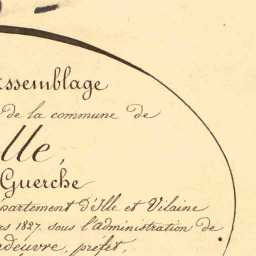 assemblage
de la commune de
lle,
Guerche
partement d'Ille et Vilaine
s 1827. sous l'administration de
préfet,